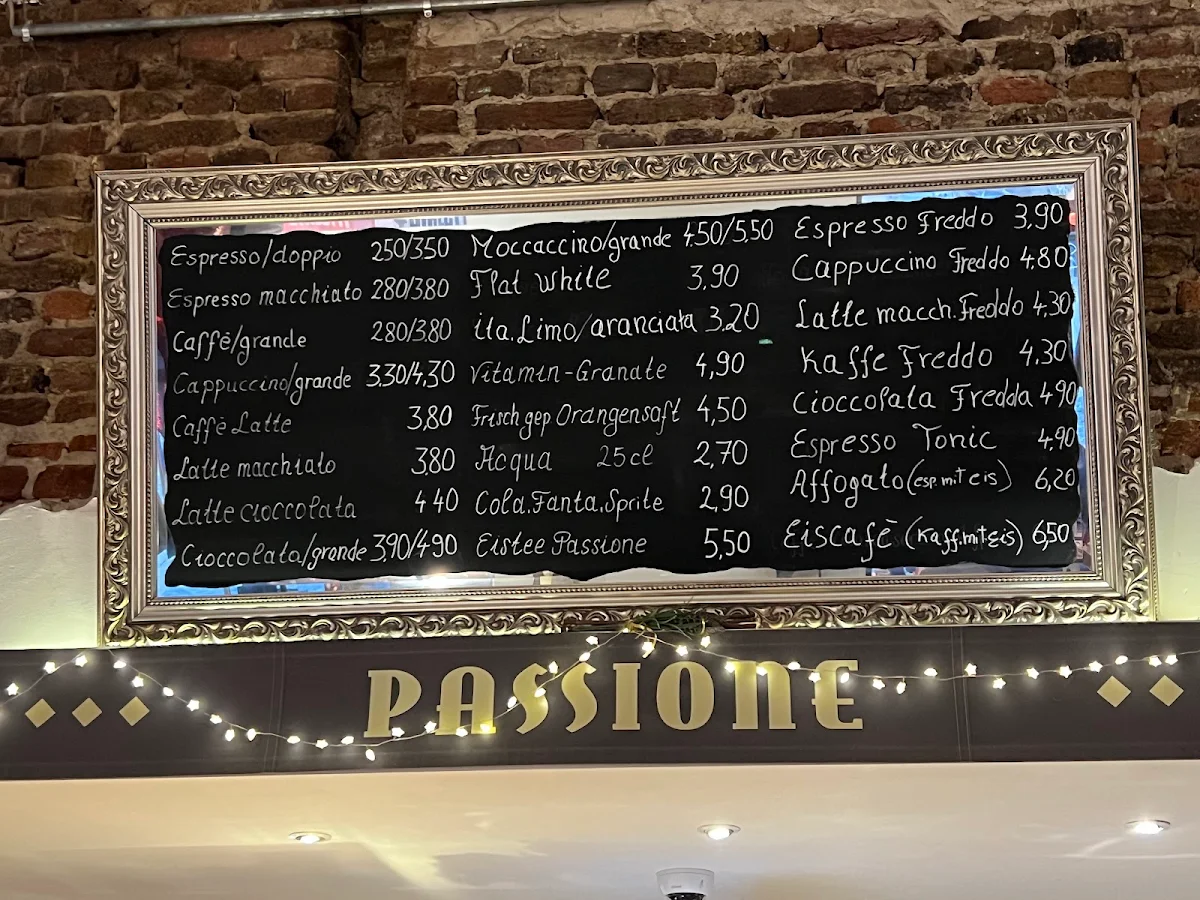 Espresso/doppio 250/350
Espresso macchiato 280/380
Caffè/grande 280/380
Cappuccino/grande 3,30/4,30
Caffè Latte 3,80
Latte macchiato 380
Latte cioccolata 440
Cioccolata/grande 3,90/490
Moccaccino/grande 450/5,50
Flat White 3,90
ita.Limo/aranciata 3,20
Vitamin-Granate 4,90
Frisch gep Orangensaft 4,50
Acqua 25cl 2,70
Cola.Fanta.Sprite 2,90
Eistee Passione 5,50
Espresso Freddo 3,90
Cappuccino Freddo 4,80
Latte macch.Freddo 4,30
Kaffe Freddo 4,30
Cioccolata Fredda 490
Espresso Tonic 4,90
Affogato(esp.mit eis) 6,20
Eiscafè (Kaff.mit eis) 6,50
PASSIONE